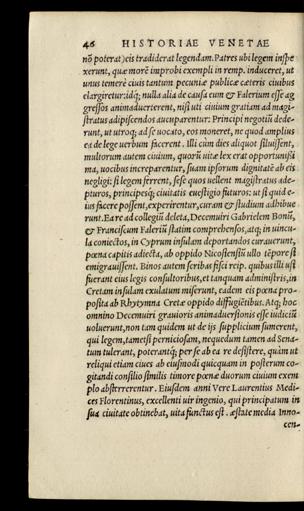 46 HISTORIAE VENETAE
nō poterat) eis tradiderat legendam. Patres ubi legem inspe
xerunt, quæ morē improbi exempli in remp. induceret, ut
unus temerè ciuis tantum pecuniæ publicæ cæteris ciuibus
elargiretur: idq; nulla alia de causa eum & Falerium esse ag
gressos animaduerterent, nisi uti ciuium gratiam ad magi-
stratus adipiscendos aucuparentur: Principi negotiū dede-
runt, ut utroq; ad se uocato, eos moneret, ne quod amplius
ea de lege uerbum facerent. Illi cùm dies aliquot siluissent,
multorum autem ciuium, quorū uitæ lex erat opportunissi
ma, uocibus increparentur, suam ipsorum dignitatē ab eis
negligi: si legem ferrent, sese quos uellent magistratus ade-
pturos, principesq; ciuitatis euestigio futuros: ut si quid e-
ius facere possent, experirentur, curam & studium adhibue
runt. Ea re ad collegiū delata, Decemuiri Gabrielem Bonū,
& Franciscum Faleriū statim comprehensos, atq; in uincu-
la coniectos, in Cyprum insulam deportandos curauerunt,
pœna capitis adiecta, ab oppido Nicosiensiū ullo tēpore si
emigrauissent. Binos autem scribas fisci reip. quibus illi usi
fuerant eius legis consultoribus, et tanquam administris, in
Cretam insulam exulatum miserunt, eadem eis pœna pro-
posita ab Rhytymna Cretæ oppido diffugiētibus. Atq; hoc
omnino Decemuiri grauioris animaduersionis esse iudiciū
uoluerunt, non tam quidem ut de ijs supplicium sumerent,
qui legem, tametsi perniciosam, nequedum tamen ad Sena-
tum tulerant, poterantq; per se ab ea re desistere, quàm ut
reliqui etiam ciues ab eiusmodi quicquam in posterum co-
gitandi consilio similis timore pœnæ duorum ciuium exem
plo absterrerentur. Eiusdem anni Vere Laurentius Medi-
ces Florentinus, excellenti uir ingenio, qui principatum in
sua ciuitate obtinebat, uita functus est. æstate media Inno-
cen-